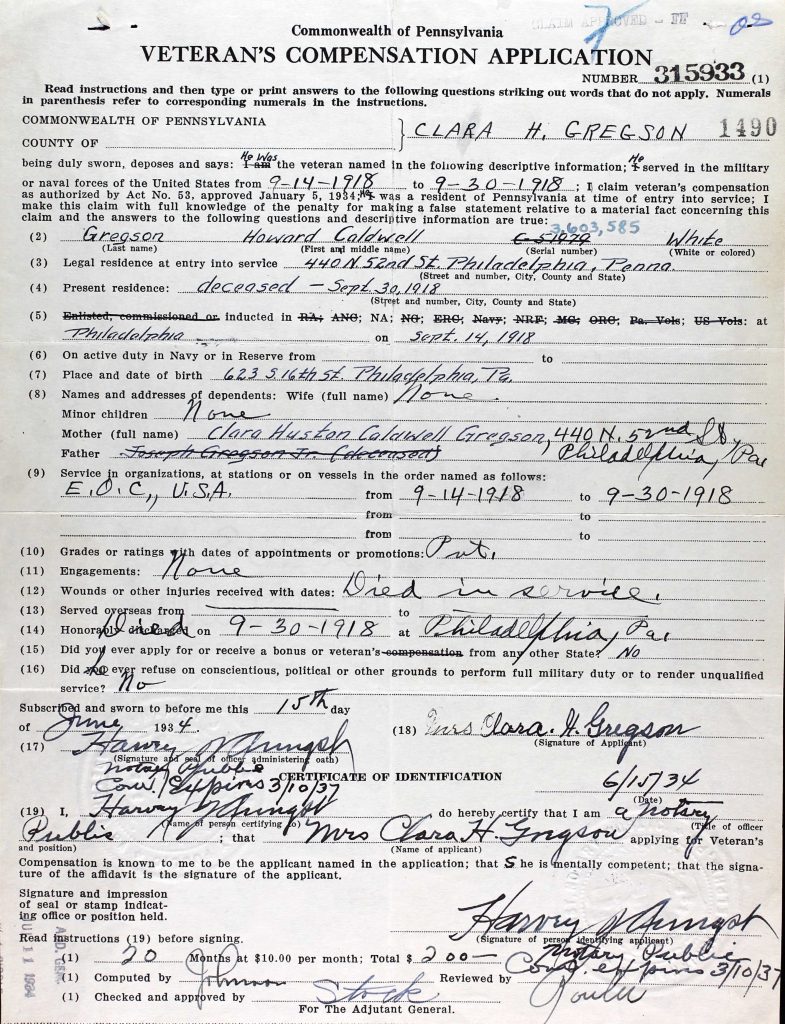 CLAIM APPROVED - FF
Commonwealth of Pennsylvania
VETERAN'S COMPENSATION APPLICATION
NUMBER 315933 (1)
Read instructions and then type or print answers to the following questions striking out words that do not apply. Numerals
in parenthesis refer to corresponding numerals in the instructions.
COMMONWEALTH OF PENNSYLVANIA
CLARA H. GREGSON 1490
COUNTY OF
being duly sworn, deposes and says: He Was I am the veteran named in the following descriptive information; He I served in the military
or naval forces of the United States from 9-14-1918 to 9-30-1918; I claim veteran's compensation
as authorized by Act No. 53, approved January 5, 1934; He I was a resident of Pennsylvania at time of entry into service; I
make this claim with full knowledge of the penalty for making a false statement relative to a material fact concerning this
claim and the answers to the following questions and descriptive information are true:
3,603,585
(2) Gregson Howard Caldwell White
(Last name) (First and middle name) (Serial number) (White or colored)
(3) Legal residence at entry into service 440 N. 52nd St. Philadelphia, Penna.
(Street and number, City, County and State)
(4) Present residence: deceased - Sept. 30, 1918
(Street and number, City, County and State)
(5) Enlisted, commissioned or inducted in RA; ANG; NA; NG; ERC; Navy; NRF; MC; ORC; Pa. Vols; US Vols: at
Philadelphia on Sept. 14, 1918
(6) On active duty in Navy or in Reserve from to
(7) Place and date of birth 623 S. 16th St. Philadelphia, Pa.
(8) Names and addresses of dependents: Wife (full name) None.
Minor children None
Mother (full name) Clara Huston Caldwell Gregson, 440 N. 52nd St,
Father Joseph Gregson Jr. (deceased) Philadelphia, Pa
(9) Service in organizations, at stations or on vessels in the order named as follows:
E.O.C., U.S.A. from 9-14-1918 to 9-30-1918
from to
from to
(10) Grades or ratings with dates of appointments or promotions: Pvt.
(11) Engagements: None
(12) Wounds or other injuries received with dates: Died in service.
(13) Served overseas from to
(14) Honorably discharged Died on 9-30-1918 at Philadelphia, Pa.
(15) Did you ever apply for or receive a bonus or veteran's compensation from any other State? No
(16) Did he ever refuse on conscientious, political or other grounds to perform full military duty or to render unqualified
service? No
Subscribed and sworn to before me this 15th day
of June, 1934. (18) Mrs Clara. H. Gregson
(Signature of Applicant)
(17) Harvey
(Signature and seal of officer administering oath)
Notary Public
Com. Expires 3/10/37
CERTIFICATE OF IDENTIFICATION
6/15/34
(Date)
(19) I, Harvey do hereby certify that I am a notary
(Name of person certifying to) (Title of officer
Public; that Mrs Clara H. Gregson applying for Veteran's
and position) (Name of applicant)
Compensation is known to me to be the applicant named in the application; that S he is mentally competent; that the signa-
ture of the affidavit is the signature of the applicant.
Signature and impression
of seal or stamp indicat-
ing office or position held.
Harvey
(Signature of person identifying applicant)
Read instructions (19) before signing.
Notary Public
(1) 20 Months at $10.00 per month; Total $ 200—
Com. expires 3/10/37
(1) Computed by Johnson Reviewed by
(1) Checked and approved by Stock
For The Adjutant General.